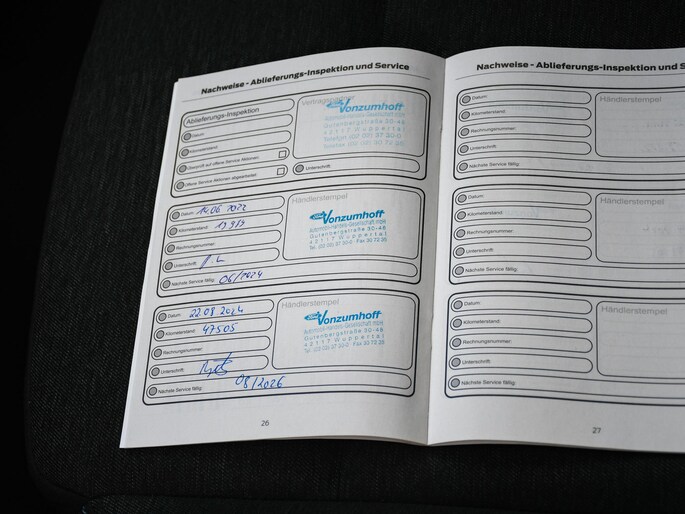 Nachweise - Ablieferungs-Inspektion und Service
Ablieferungs-Inspektion
Datum:
Kilometerstand:
Geprüft auf offene Service Aktionen:
Offene Service Aktionen abgearbeitet:
Vonzumhoff
Gutenbergstraße 30-48
42117 Wuppertal
Unterschrift:
Datum: 14.06.2022
Kilometerstand:
Rechnungsnummer:
Unterschrift:
Nächste Service fällig: 06/2024
Händlerstempel
Ford Vonzumhoff
Automobil-Handels-Gesellschaft mbH
Gutenbergstraße 30-48
42117 Wuppertal
Datum: 22.08.2024
Kilometerstand: 47505
Rechnungsnummer:
Unterschrift:
Nächste Service fällig: 08/2026
Händlerstempel
Ford Vonzumhoff
Automobil-Handels-Gesellschaft mbH
Gutenbergstraße 30-48
42117 Wuppertal
26
Nachweise - Ablieferungs-Inspektion und S
Datum:
Kilometerstand:
Rechnungsnummer:
Unterschrift:
Nächste Service fällig:
Händlerstempel
Datum:
Kilometerstand:
Rechnungsnummer:
Unterschrift:
Nächste Service fällig:
Händlerstempel
Datum:
Kilometerstand:
Rechnungsnummer:
Unterschrift:
Nächste Service fällig:
Händlerstempel
27